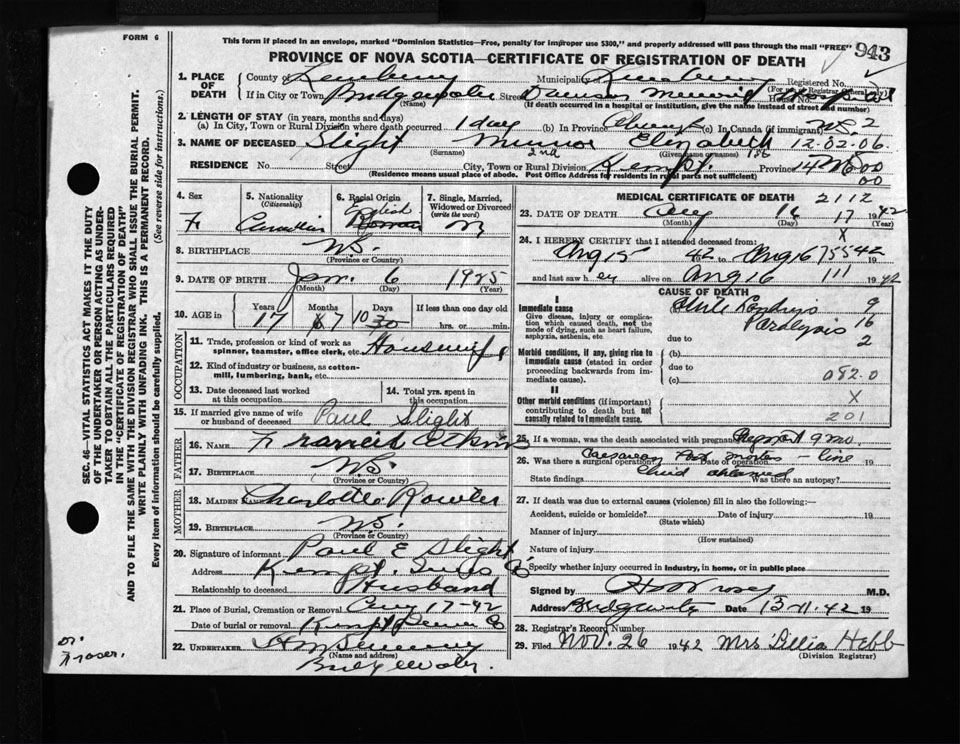 FORM 6
This form if placed in an envelope, marked "Dominion Statistics—Free, penalty for improper use $300," and properly addressed will pass through the mail "FREE"
943
PROVINCE OF NOVA SCOTIA—CERTIFICATE OF REGISTRATION OF DEATH
1. PLACE OF DEATH County of Lunenburg Municipality of Lunenburg Registered No.
If in City or Town Bridgewater Street Dawson Memorial Hospital
(Name) (If death occurred in a hospital or institution, give the name instead of street and number)
2. LENGTH OF STAY (in years, months and days)
(a) In City, Town or Rural Division where death occurred 1 day (b) In Province Always (c) In Canada (if immigrant) N.S. 2
3. NAME OF DECEASED Slight Minnie Elizabeth 12-02-06
(Surname) 2nd (Given name or names) 1st
RESIDENCE No. Street City, Town or Rural Division Kempt Province N.S. 00
(Residence means usual place of abode. Post Office Address for residents in rural parts not sufficient) 00
4. Sex 5. Nationality (Citizenship) 6. Racial Origin 7. Single, Married, Widowed or Divorced (write the word)
F Canadian English M
8. BIRTHPLACE N.S.
(Province or County)
9. DATE OF BIRTH Jan. 6 1925
(Month) (Day) (Year)
10. AGE in Years Months Days If less than one day old
17 7 10 30 hrs. or min.
OCCUPATION
11. Trade, profession or kind of work as spinner, teamster, office clerk, etc. Housewife
12. Kind of industry or business, as cotton-mill, lumbering, bank, etc.
13. Date deceased last worked at this occupation 14. Total yrs. spent in this occupation
15. If married give name of wife or husband of deceased Paul Slight
FATHER
16. NAME Francis
17. BIRTHPLACE N.S.
(Province or County)
MOTHER
18. MAIDEN NAME Charlotte Rowter
19. BIRTHPLACE N.S.
(Province or County)
20. Signature of informant Paul E Slight
Address Kempt. Queens Co
Relationship to deceased Husband
21. Place of Burial, Cremation or Removal Aug 17-42
Date of burial or removal Kempt Queens Co
22. UNDERTAKER
(Name and address)
Bridgewater.
MEDICAL CERTIFICATE OF DEATH 2112
23. DATE OF DEATH Aug 16 17 1942
(Month) (Day) (Year)
X
24. I HEREBY CERTIFY that I attended deceased from:
Aug 15 42 to Aug 16 1942
and last saw her alive on Aug 16 1942
CAUSE OF DEATH
I
Immediate cause
Give disease, injury or complication which caused death, not the mode of dying, such as heart failure, asphyxia, asthenia, etc
Acute Landrys 9
Paralysis 16
due to 2
Morbid conditions, if any, giving rise to immediate cause (stated in order proceeding backwards from immediate cause).
(b)
due to
(c) 082.0
II
Other morbid conditions (if important) contributing to death but not causally related to immediate cause
X
201
25. If a woman, was the death associated with pregnancy Pregnant 9 mo.
26. Was there a surgical operation Caesarean Post mortem Date of operation 19
State findings Child Was there an autopsy?
27. If death was due to external causes (violence) fill in also the following:—
Accident, suicide or homicide? Date of injury 19
(State which)
Manner of injury
(How sustained)
Nature of injury
Specify whether injury occurred in industry, in home, or in public place
Signed by M.D.
Address Bridgewater Date 13-11-42 19
28. Registrar's Record Number
29. Filed Nov. 26 1942 Mrs Lillia Hebb
(Division Registrar)
SEC. 46—VITAL STATISTICS ACT MAKES IT THE DUTY OF THE UNDERTAKER OR PERSON ACTING AS UNDERTAKER TO OBTAIN ALL THE PARTICULARS REQUIRED IN THE "CERTIFICATE OF REGISTRATION OF DEATH" AND TO FILE THE SAME WITH THE DIVISION REGISTRAR WHO SHALL ISSUE THE BURIAL PERMIT. (See reverse side for instructions.)
WRITE PLAINLY WITH UNFADING INK. THIS IS A PERMANENT RECORD.
Every item of information should be carefully supplied.
Dr.
Fraser.